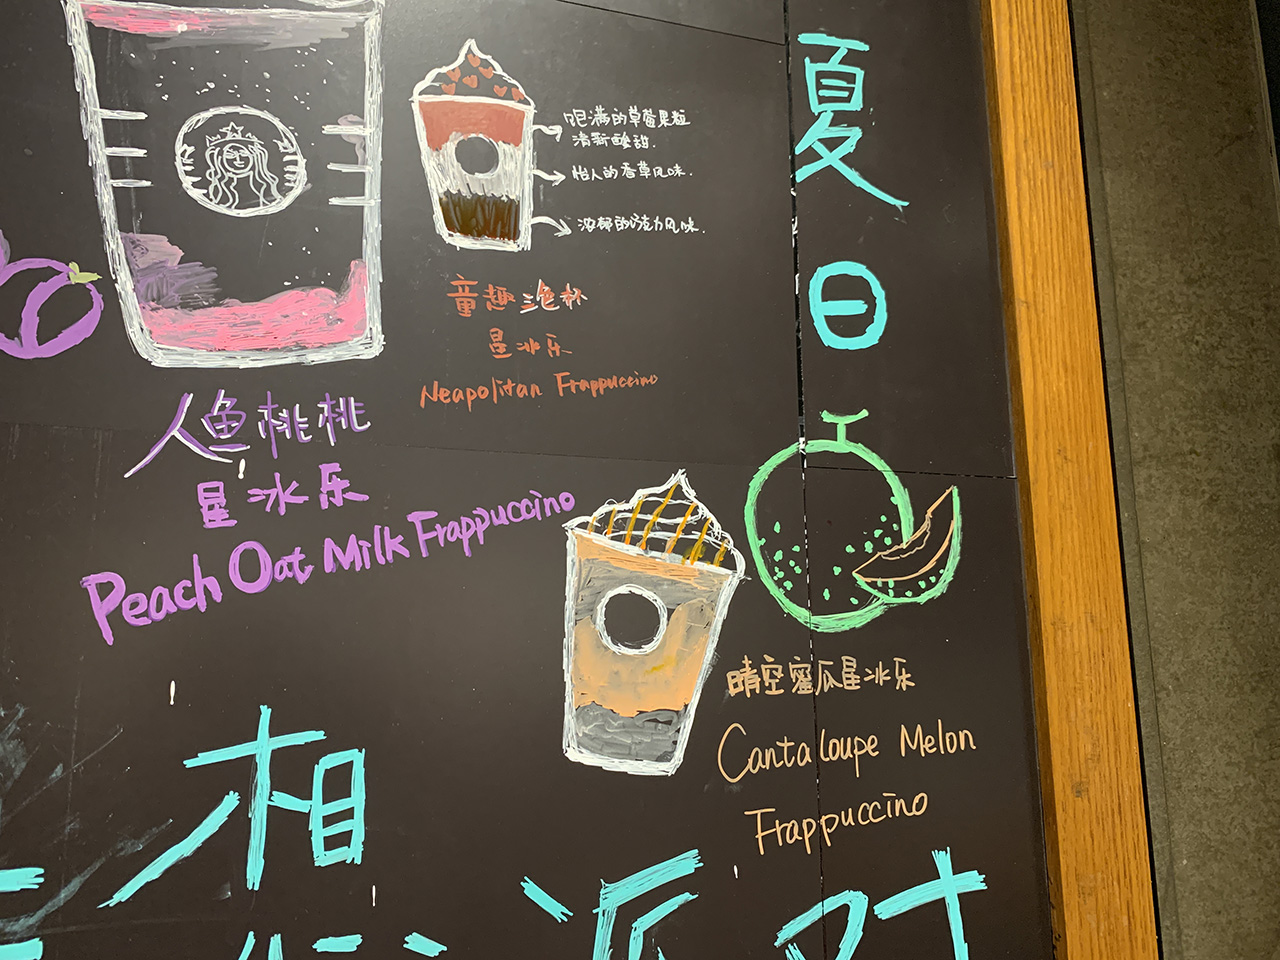 夏日
咀满的草莓果粒
清新酸甜.
怡人的香草风味.
浓郁的巧克力风味.
童趣三色杯
星冰乐
Neapolitan Frappuccino
人鱼桃桃
星冰乐
Peach Oat Milk Frappuccino
晴空蜜瓜星冰乐
Cantaloupe Melon
Frappuccino
想
派对